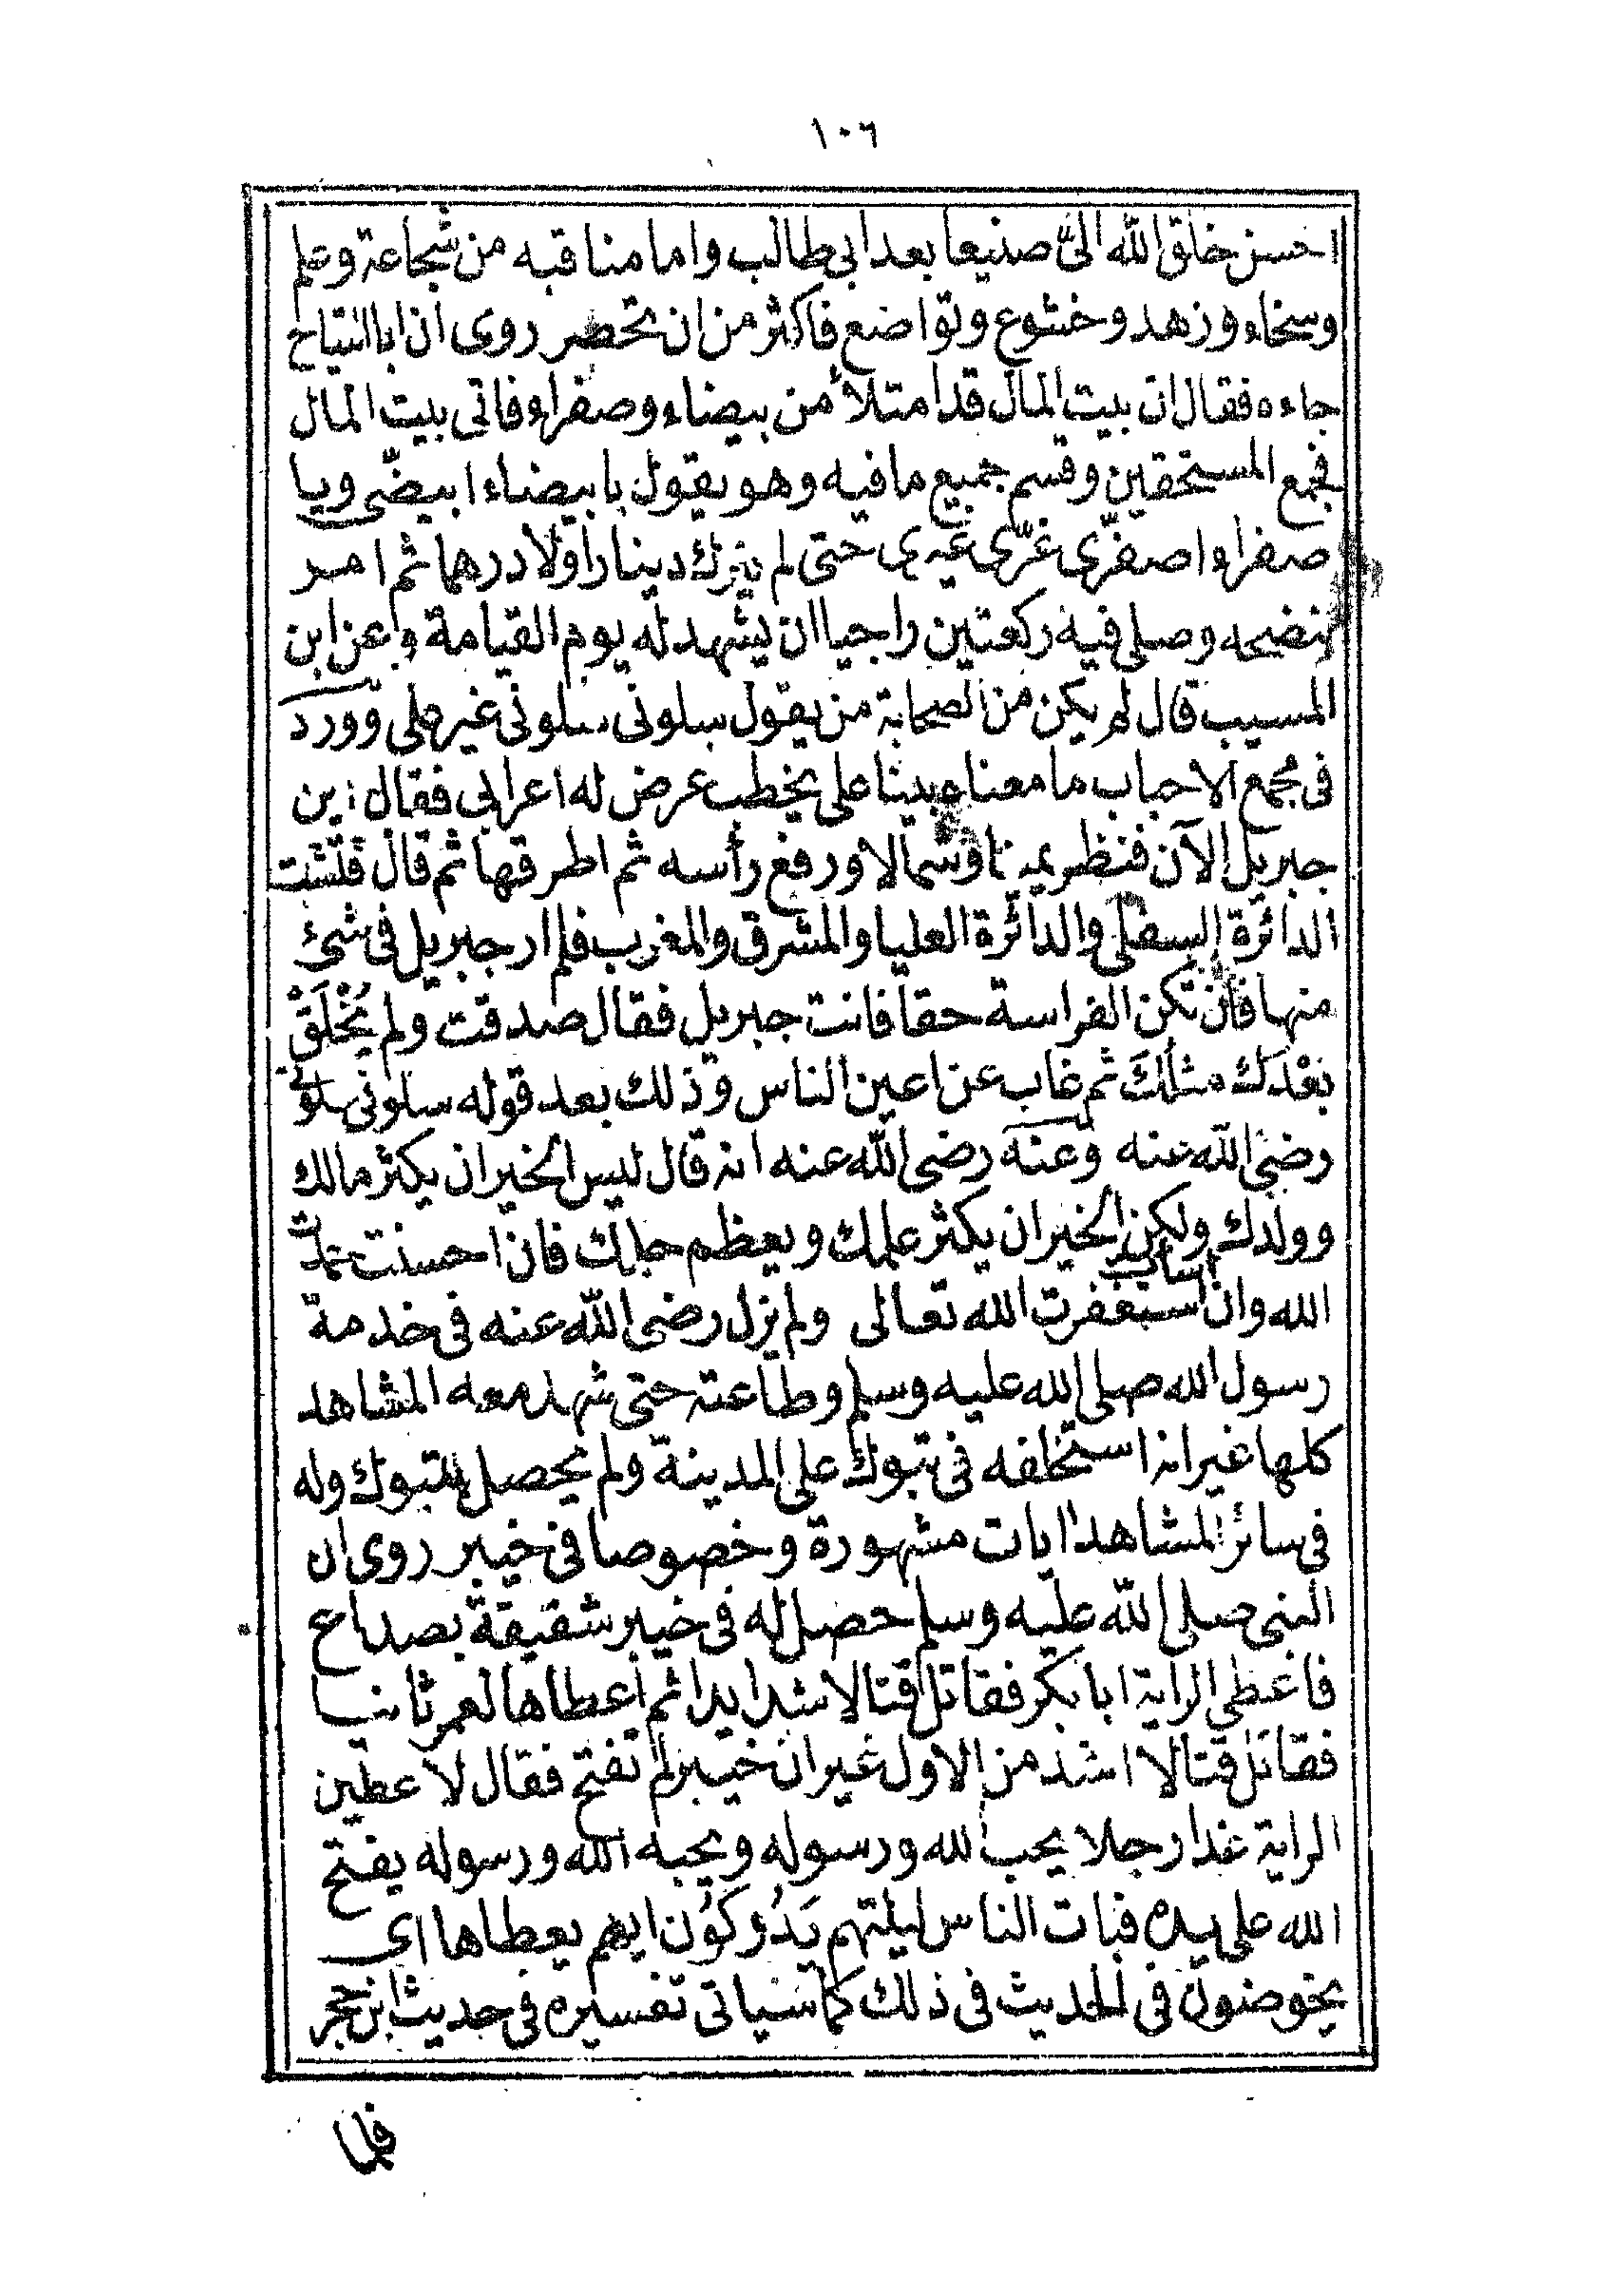 ١٠٦
احسن خلق الله الىّ صنيعا بعد ابى طالب واما مناقبه من شجاعة وعلم
وسخاء وزهد وخشوع وتواضع فاكثر من ان تحصر روى ان ابا التياح
جاءه فقال ان بيت المال قد امتلأ من بيضاء وصفراء فاتى بيت المال
فجمع المستحقين وقسم جميع ما فيه وهو يقول يا بيضاء ابيضّى ويا
صفراء اصفرّى غرّى غيرى حتى لم يترك دينارا ولا درهما ثم امر
بنضحه وصلى فيه ركعتين راجيا ان يشهد له يوم القيامة وعن ابن
المسيب قال لم يكن من الصحابة من يقول سلونى سلونى غير على وورد
فى مجمع الاحباب ما معناه بينا على يخطب عرض له اعرابى فقال اين
جبريل الآن فنظر يمينا وشمالا ورفع رأسه ثم اطرقها ثم قال فتشت
الدائرة السفلى والدائرة العليا والمشرق والمغرب فلم ار جبريل فى شئ
منها فان تكن الفراسة حقا فانت جبريل فقال صدقت ولم يُخْلَقْ
بَعْدَك مثلُكَ ثم غاب عن اعين الناس وذلك بعد قوله سلونى سلونى
رضى الله عنه وعنه رضى الله عنه انه قال ليس الخير ان يكثر مالك
وولدك ولكن الخير ان يكثر علمك ويعظم حلمك فان احسنت حمدت
الله وان اسأت استغفرت الله تعالى ولم يزل رضى الله عنه فى خدمة
رسول الله صلى الله عليه وسلم وطاعته حتى شهد معه المشاهد
كلها غير انه استخلفه فى تبوك على المدينة ولم يحصل بتبوك وله
فى سائر المشاهد ايات مشهورة وخصوصا فى خيبر روى ان
النبى صلى الله عليه وسلم حصل له فى خيبر شقيقة بصداع
فاعطى الراية ابا بكر فقاتل قتالا شديدا ثم اعطاها لعمر ثانيا
فقاتل قتالا اشد من الاول غير ان خيبر لم تفتح فقال لاعطين
الراية غدا رجلا يحب الله ورسوله ويحبه الله ورسوله يفتح
الله على يده فبات الناس ليلتهم يَدُوكُون ايهم يعطاها اى
يخوضون فى الحديث فى ذلك كما سياتى تفسيره فى حديث ابن حجر
فلما